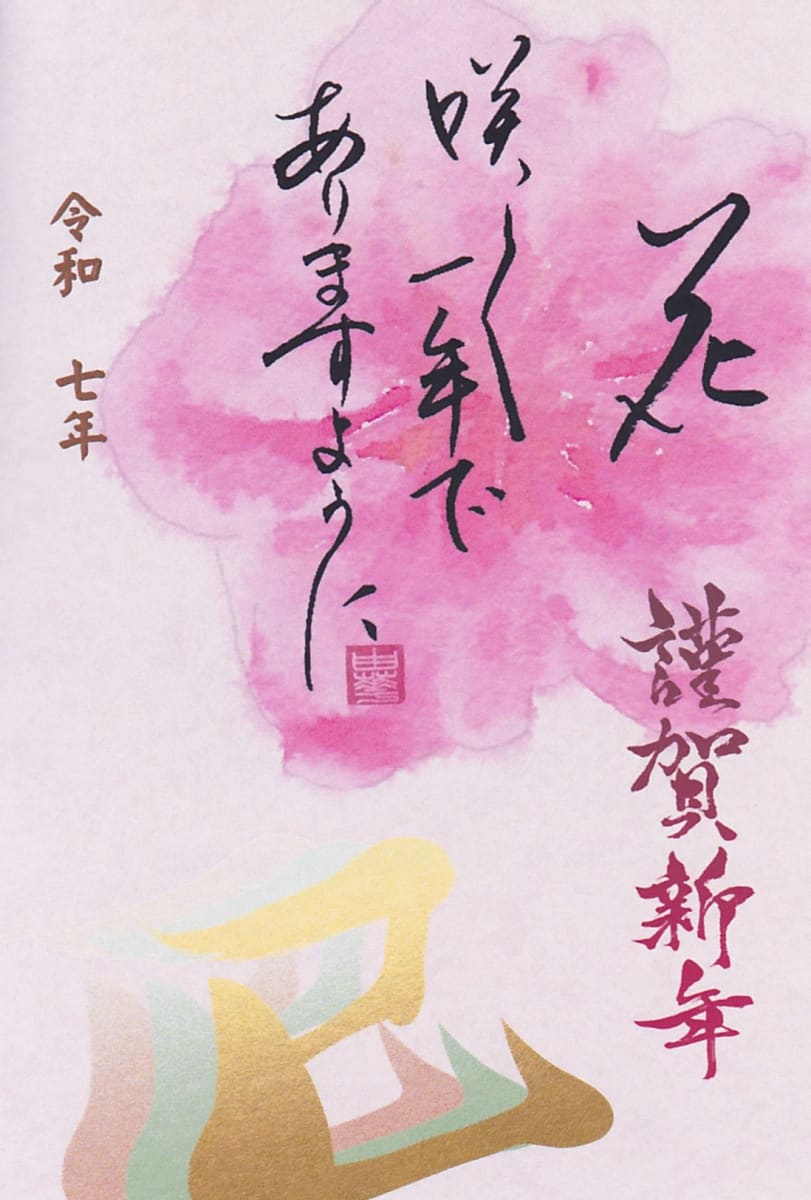 花
咲く一年で
ありますように
謹賀新年
令和 七年
巳